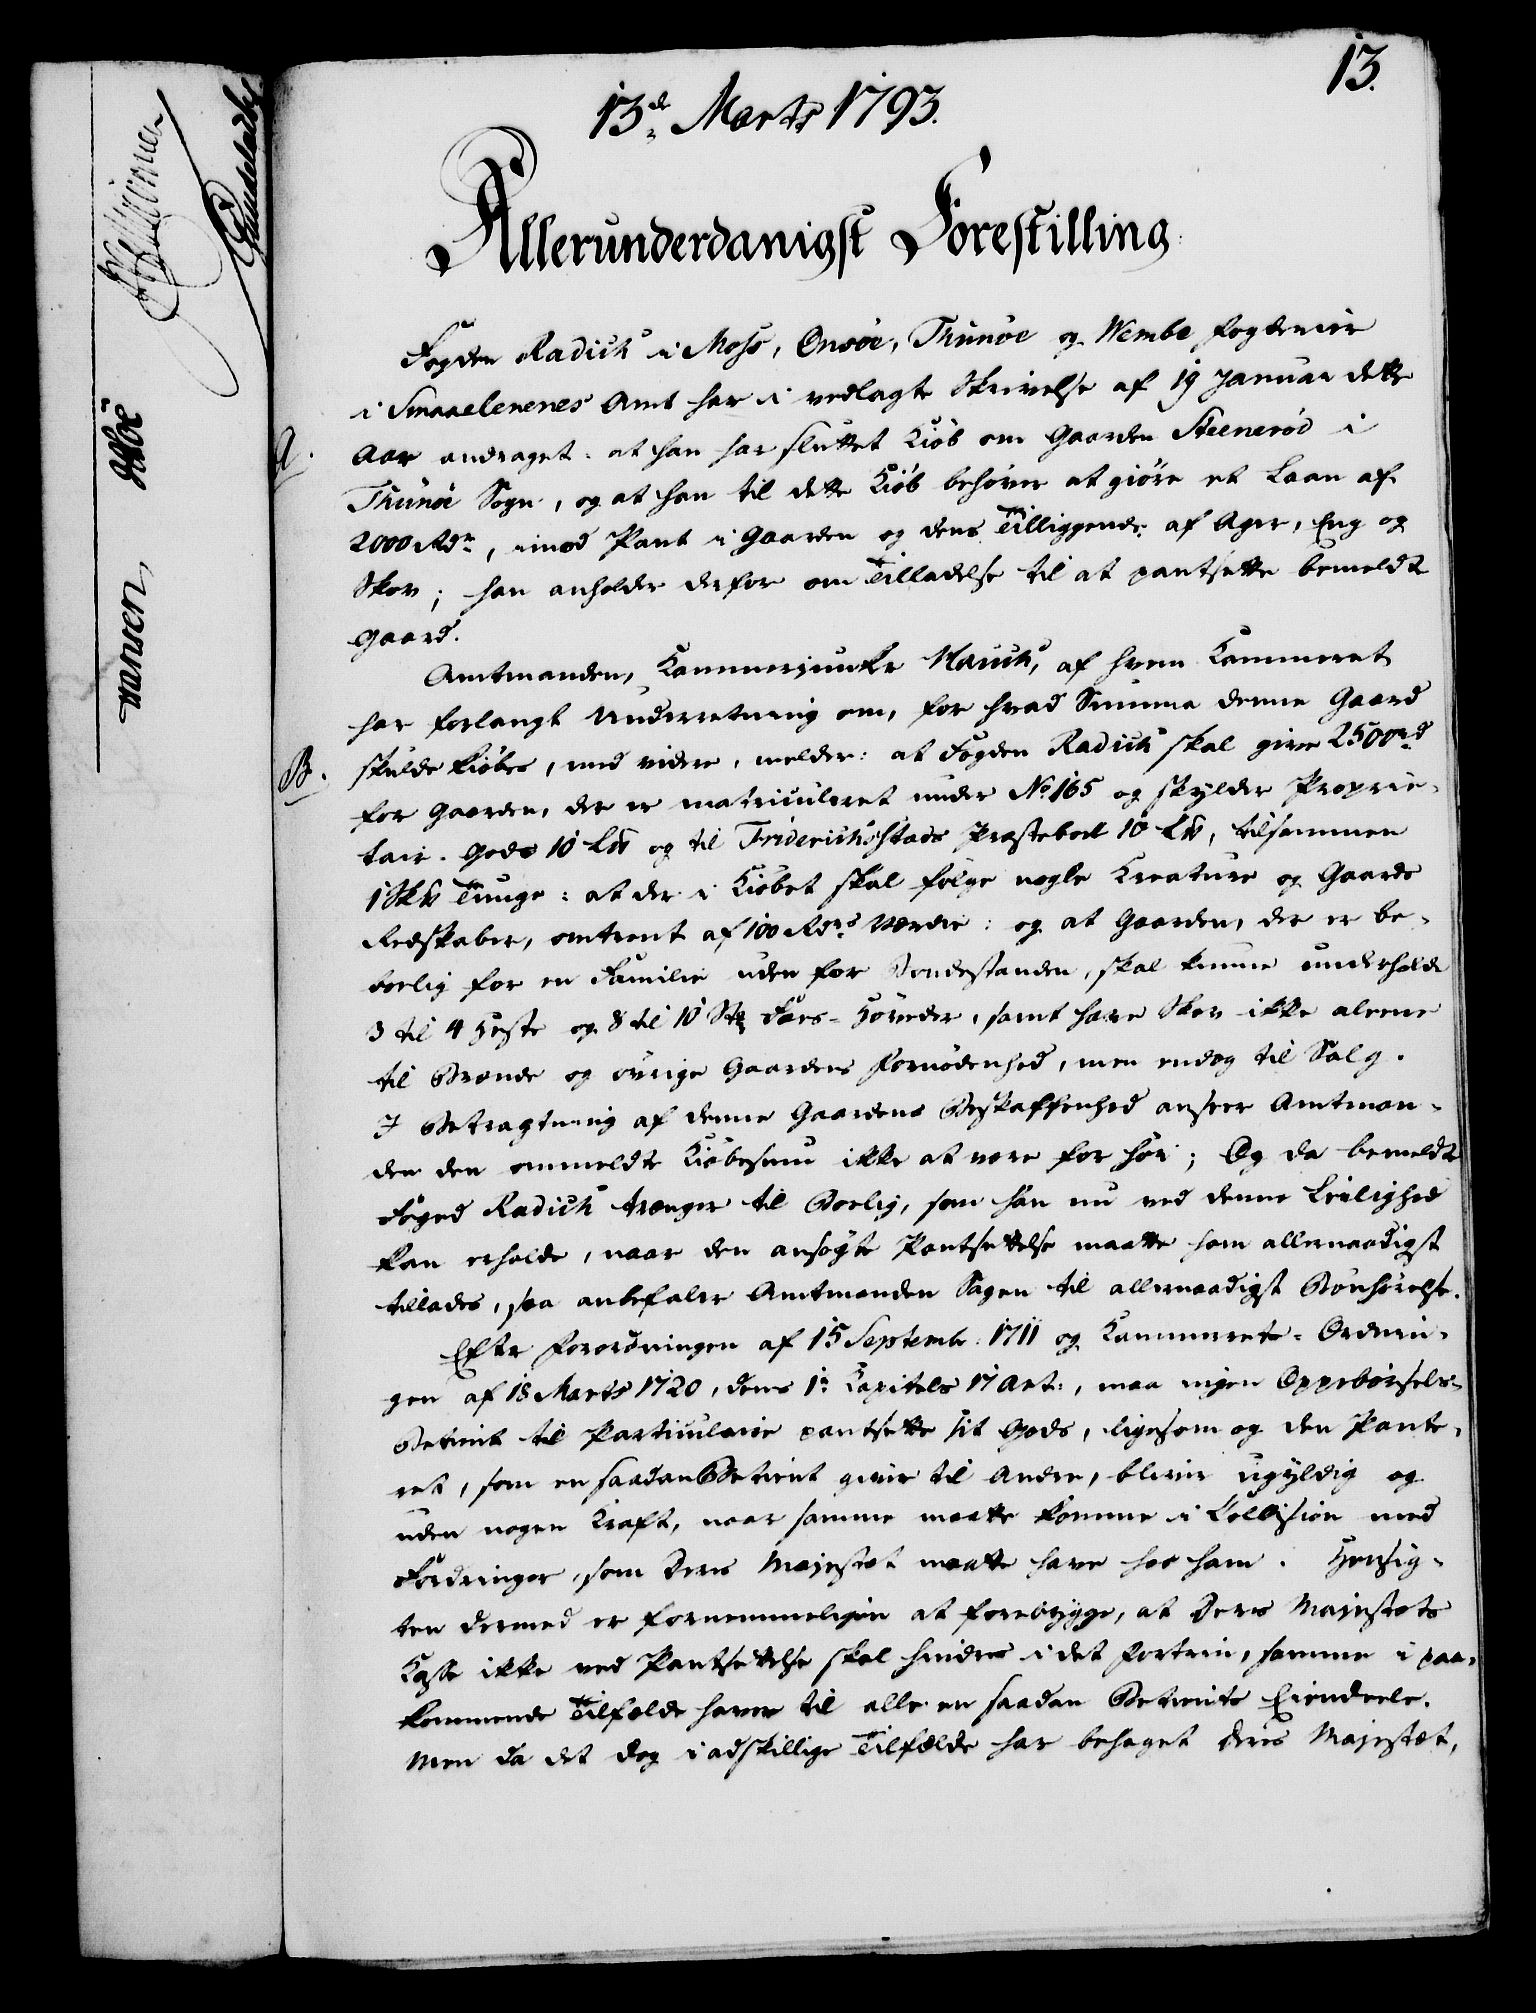 13.
13de Marts 1793.
Allerunderdanigst Forestilling
Fogden Radich i Moss, Onsöe, Thunöe og Wembe fogderier
i Smaaelenenes Amt har i vedlagte Skrivelse af 19 Januar dette
A. Aar andraget: at han har sluttet Kiöb om Gaarden Steeneröd i
Thunöe Sogn, og at han til dette Kiöb behöver at giöre et Laan af
2000 Rdr, imod Pant i Gaarden og dens Tilliggende af Ager, Eng og
Skov; han anholder derfor om Tilladelse til at pantsette bemeldte
Gaard.
Amtmanden, Kammerjunker Mauch, af hvem Kammeret
har forlangt Underretning om, for hvad Summa denne Gaard
B. skulde kiöbes, med videre, melder: at Fogden Radich skal give 2500 rd
for Gaarden, der er matriculeret under No 165 og skylder Proprie-
tair-Gods 10 L℔ og til Friderichsstads Præstebord 10 L℔, tilsammen
1 Sk℔ Tunge: at der i Kiöbet skal fölge nogle Kreature og Gaards
Redskaber, omtrent af 100 Rdrs Værdie: og at Gaarden, der er be-
boelig for en Familie uden for Bondestanden, skal kunne underholde
3 til 4 Heste og 8 til 10 Stk Faes-Höveder, samt have Skov ikke alene
til Brænde og övrige Gaardens Fornödenhed, men endog til Salg.
I Betragtning af denne Gaardens Beskaffenhed anseer Amtman-
den den ommeldte Kiöbesum ikke at være for höi; Og da bemeldte
Foged Radich trænger til Boelig, som han nu ved denne Leilighed
kan erholde, naar den ansögte Pantsettelse maatte ham allernaadigst
tillades, saa anbefaler Amtmanden Sagen til allernaadigst Bönhörelse.
Efter Forordningen af 15 Septembr. 1711 og Kammerrets-Ordnin-
gen af 18 Marts 1720, dens 1te Capitels 17 Art:, maa ingen Oppebörsels-
Betient til Particulaire pantsette sit Gods, ligesom og den Pante-
ret, som en saadan Betient giver til Andre, bliver ugyldig og
uden nogen Kraft, naar samme maatte komme i Collision med
Fordringer, som Deres Majestæt maatte have hos ham. Hensig-
ten dermed er fornemmeligen at forebygge, at Deres Majestæts
Kasse ikke ved Pantsettelse skal hindres i det Fortrin, samme i paa-
kommende Tilfælde haver til alle en saadan Betients Eiendeele.
Men da det dog i adskillige Tilfælde har behaget Deres Majestæt,